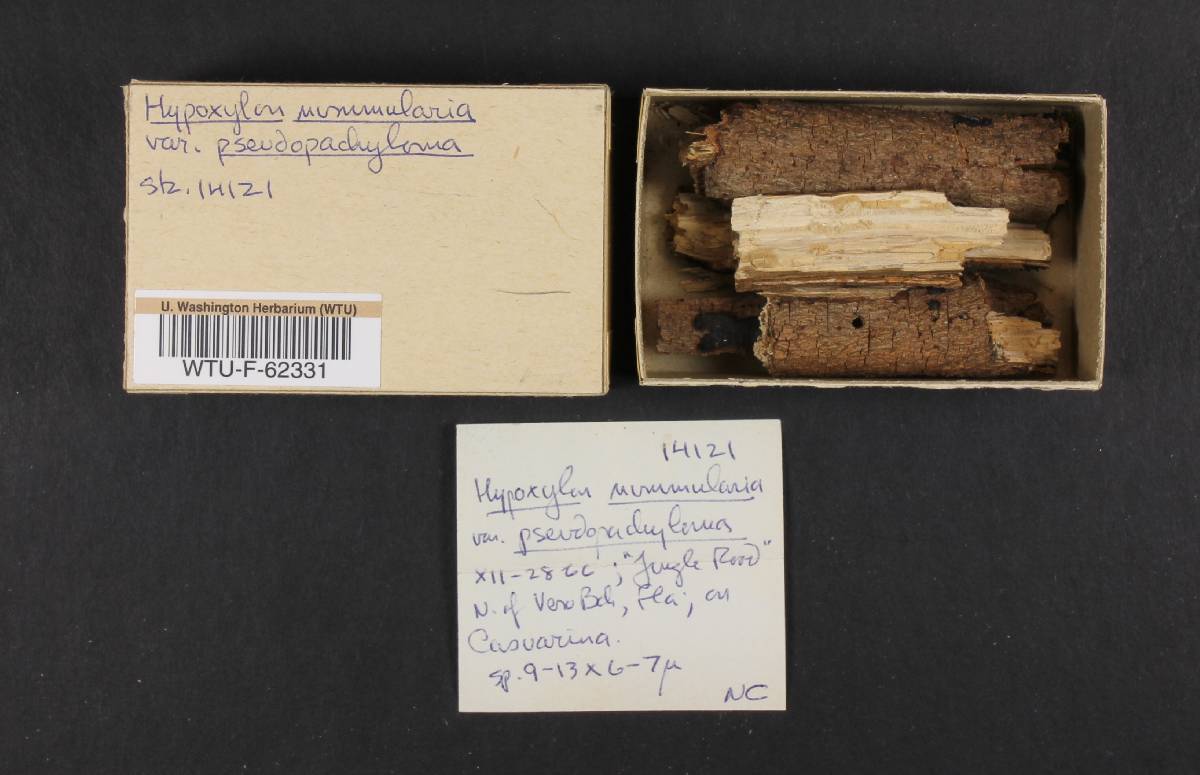 Hypoxylon nummularia
var. pseudopachyloma
stz. 14121
U. Washington Herbarium (WTU)
WTU-F-62331
14121
Hypoxylon nummularia
var. pseudopachyloma
XII-28 66; "Jungle Road"
N. of Vero Bch, Fla; on
Casuarina.
sp. 9-13 x 6-7 µ
NC